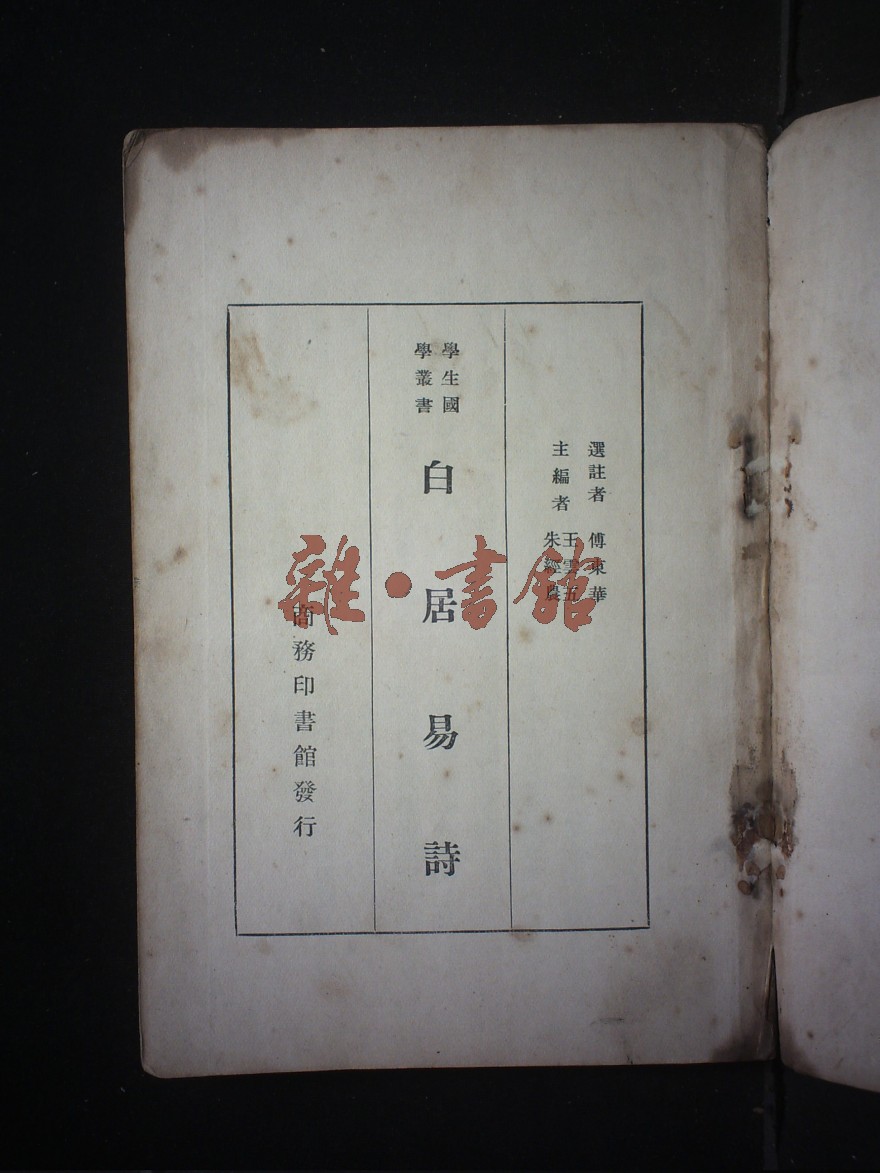 選註者 傅東華
主編者 王雲五
朱經農
學生國
學叢書
白居易詩
商務印書館發行
雜·書館